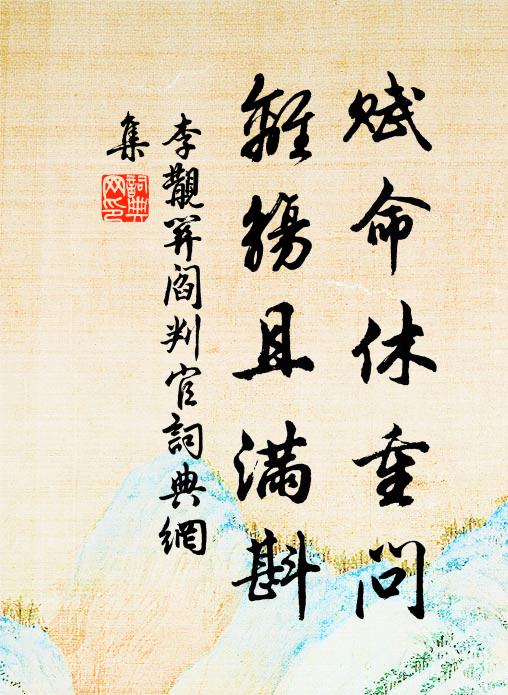 賦命休重問
離觴且滿斟
李覯送閻判官詞典網
集
詞典网印